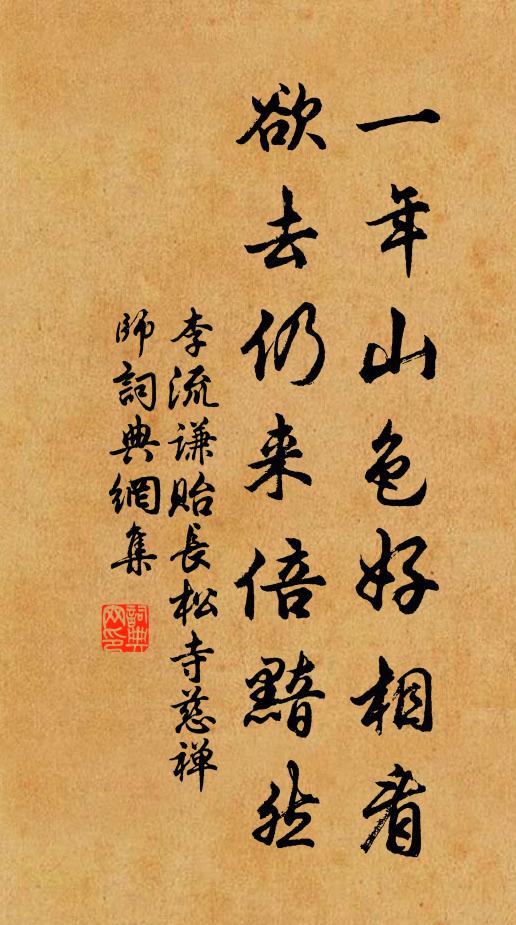 一年山色好相看
欲去仍来倍黯然
李流谦贻長松寺慈禅
師詞典網集
詞典
网印